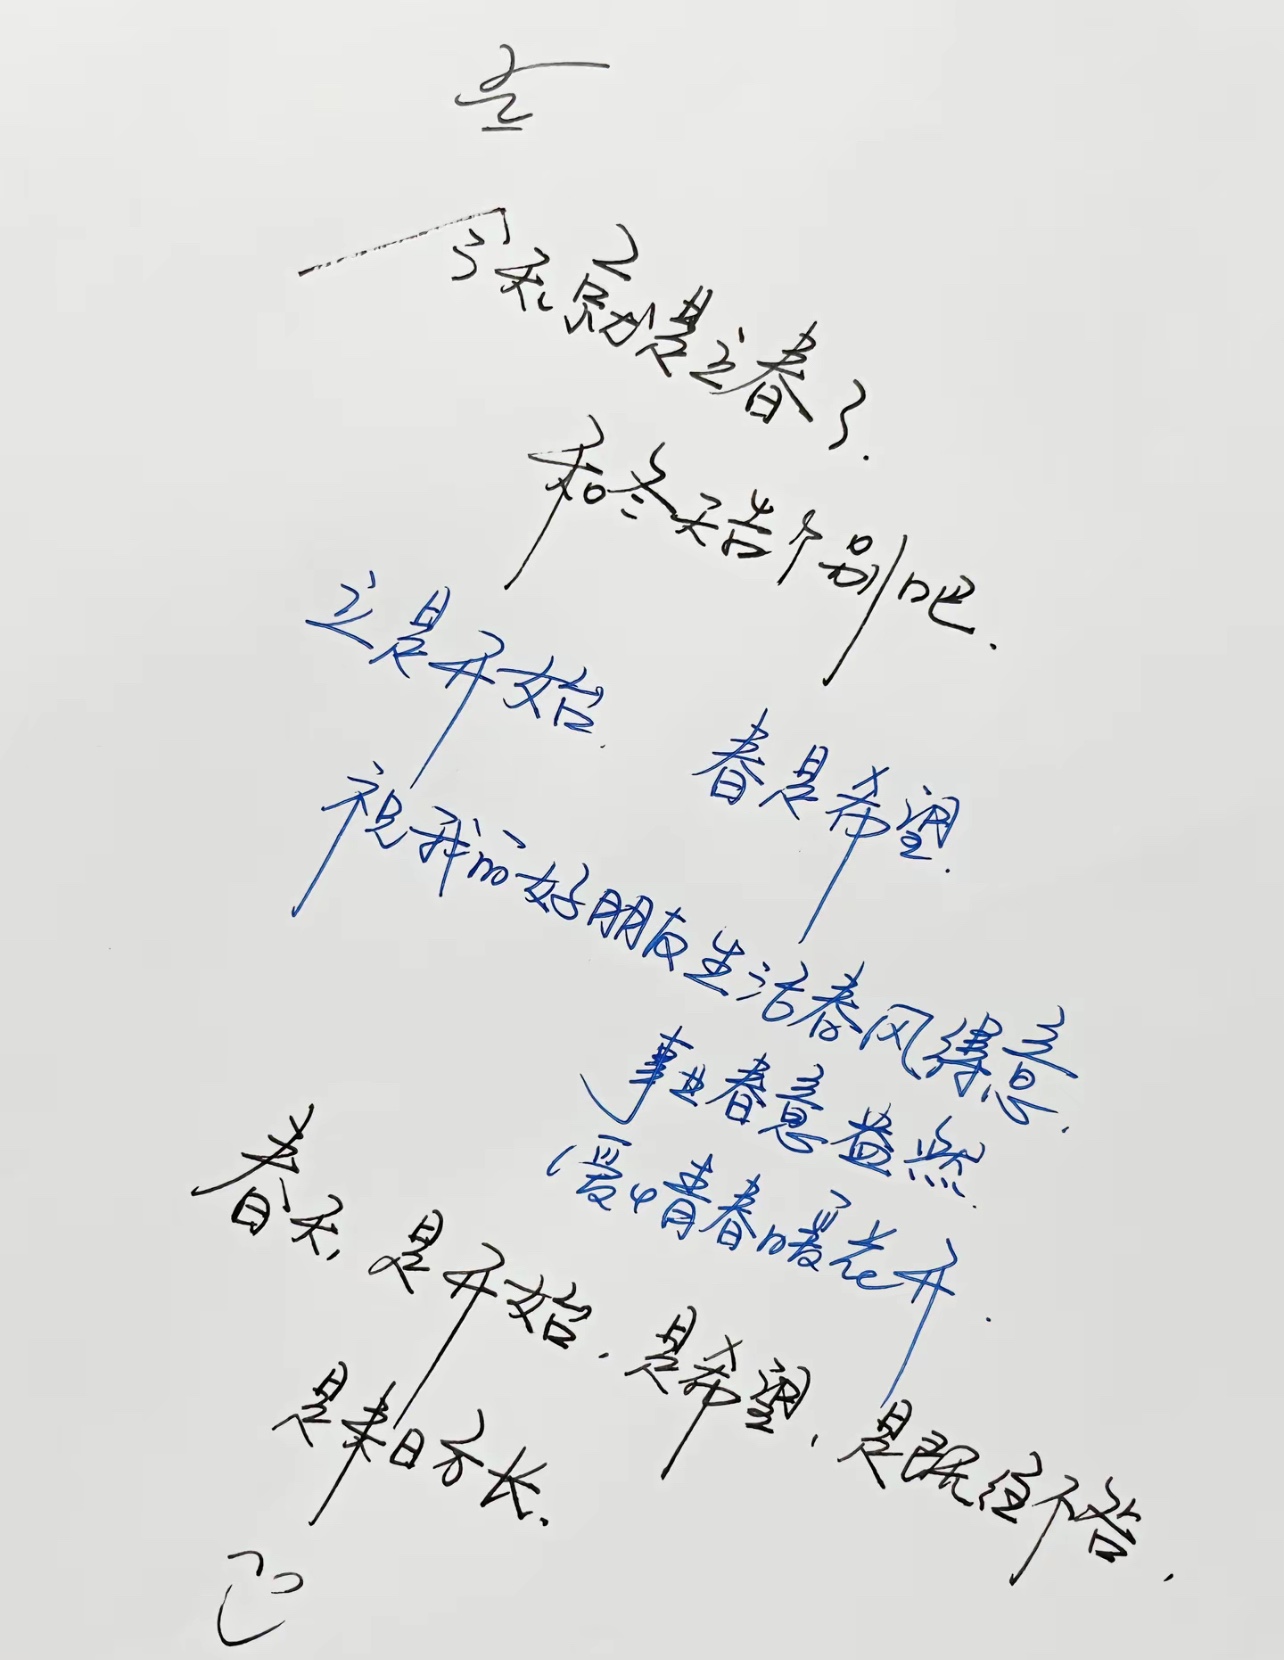 今天就是立春了.
和冬天告个别吧.
立是开始.
春是希望.
祝我的好朋友生活春风得意.
事业春意盎然.
爱情春暖花开.
春天,是开始.是希望,是既往不咎.
是来日方长.